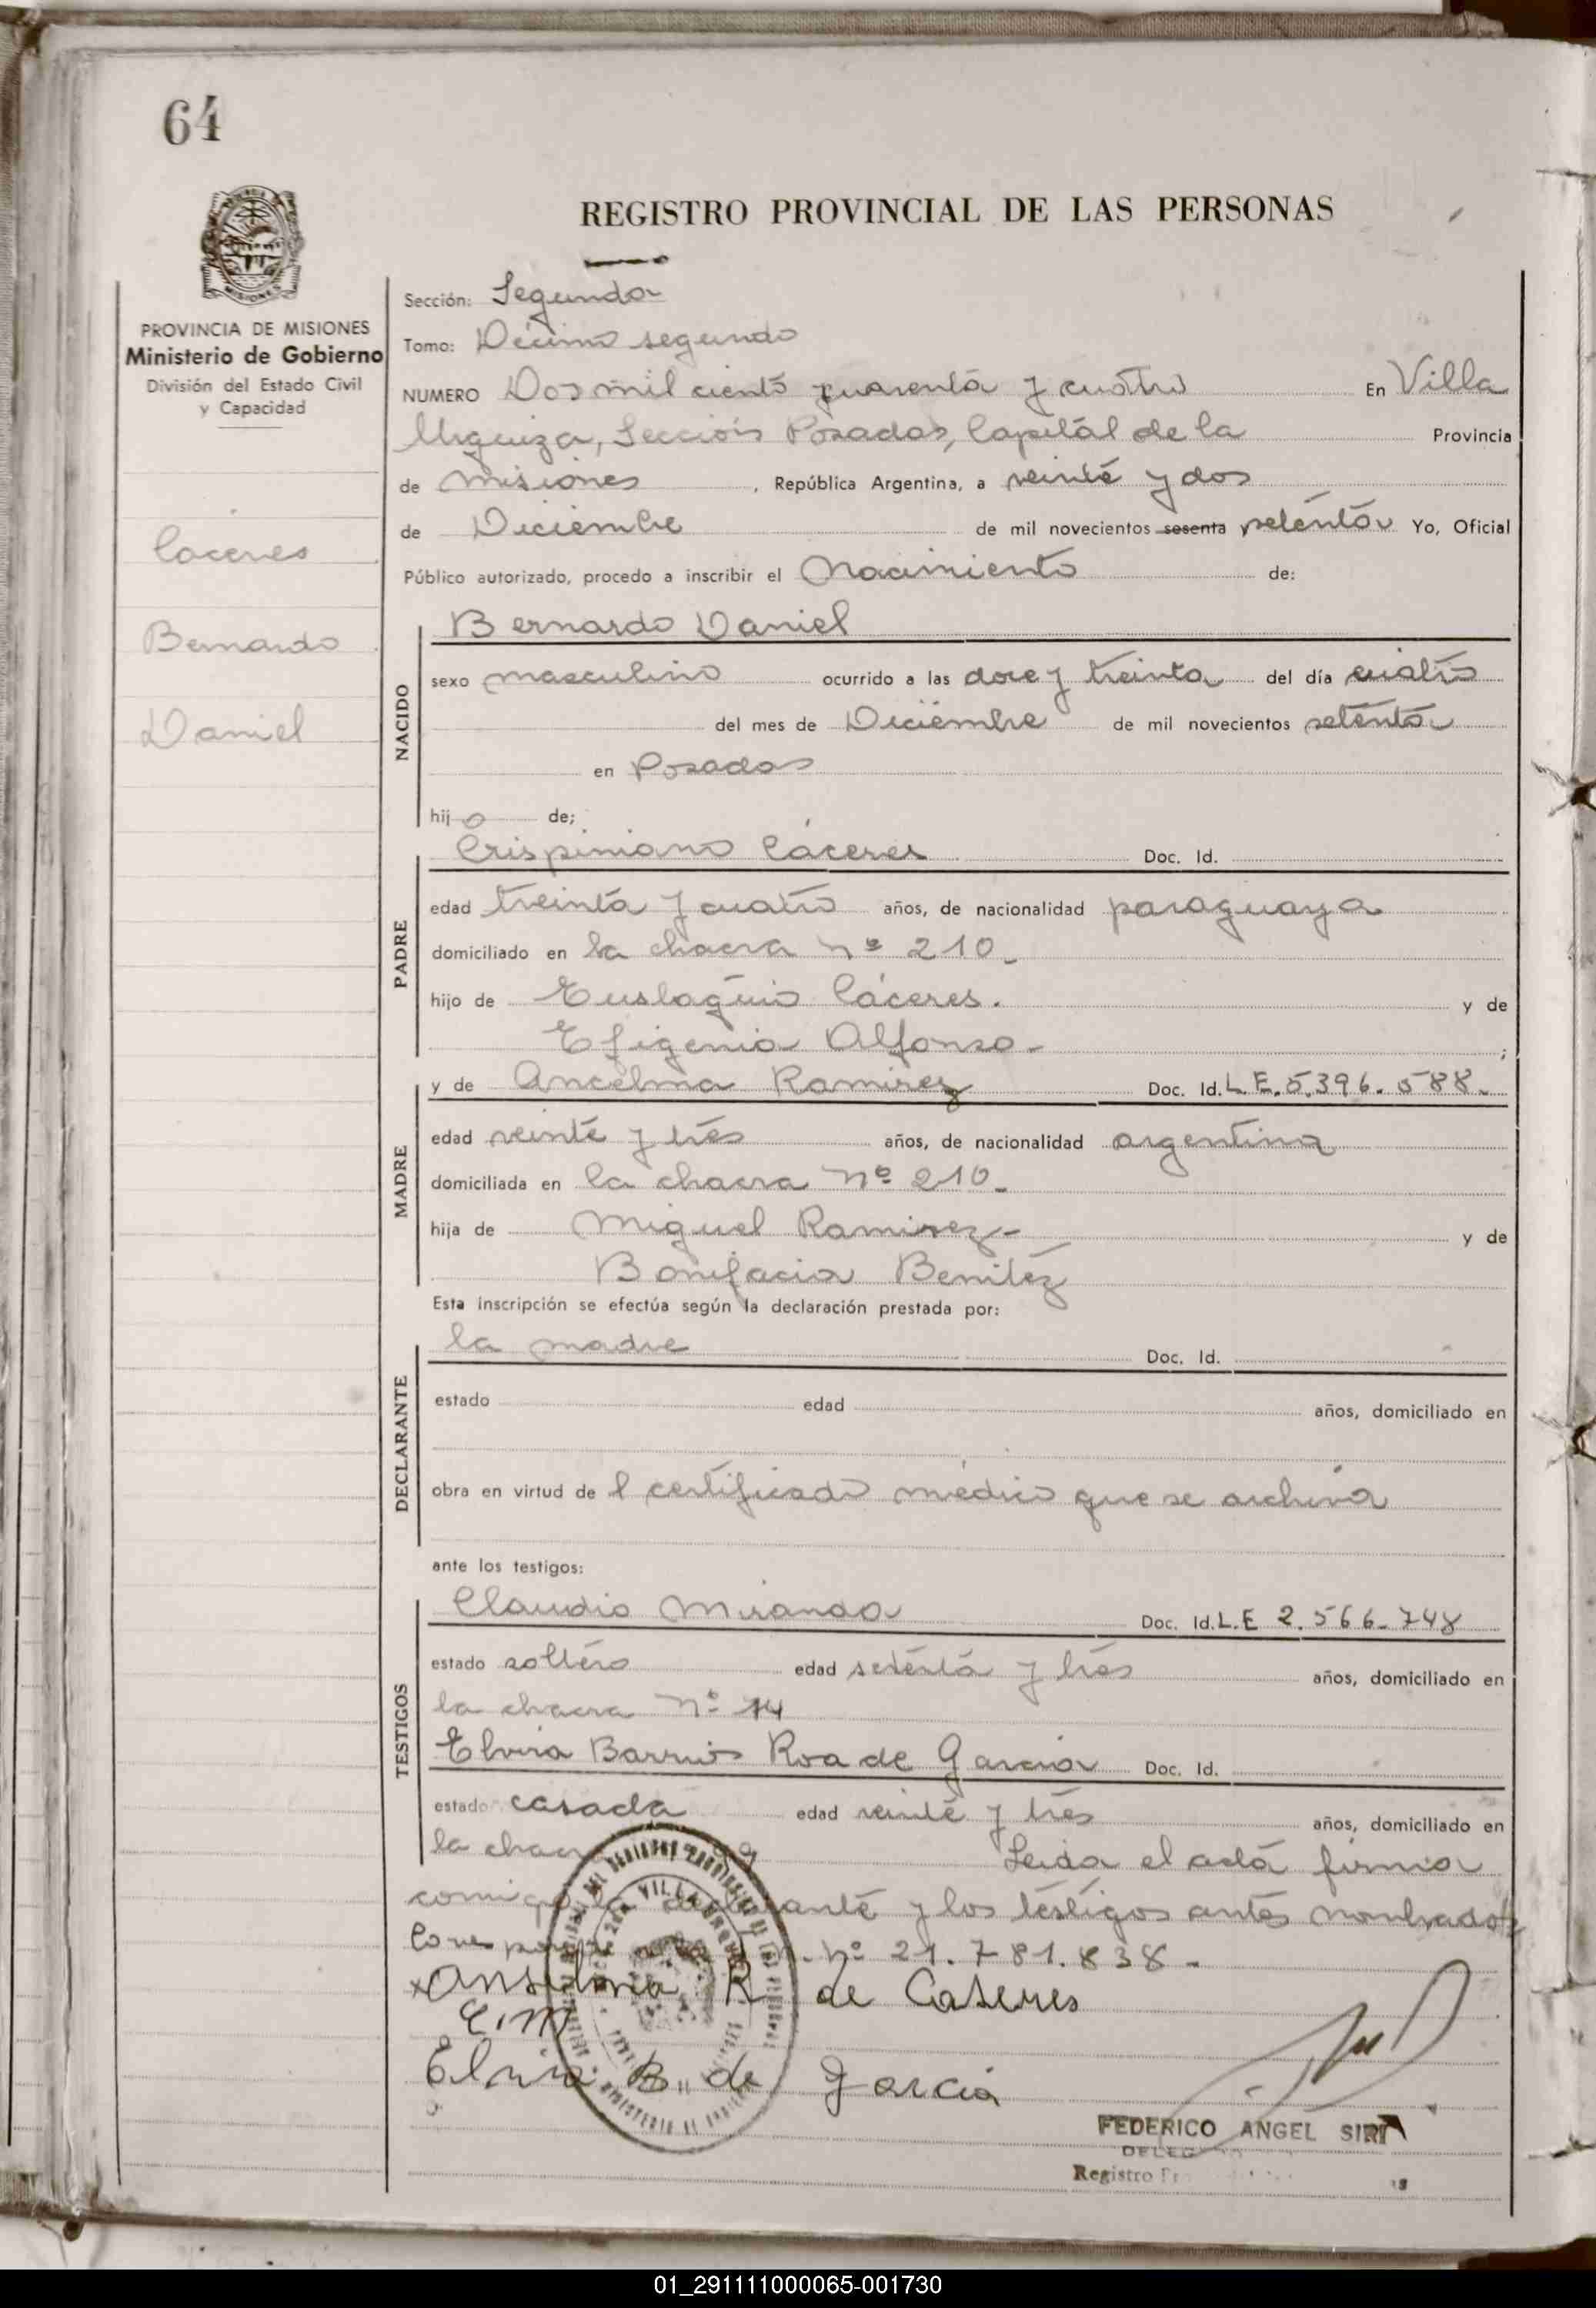 64
REGISTRO PROVINCIAL DE LAS PERSONAS
MISIONES
PROVINCIA DE MISIONES
Ministerio de Gobierno
División del Estado Civil
y Capacidad
Cáceres
Bernardo
Daniel
Sección: Segunda
Tomo: Décimo segundo
NUMERO Dos mil ciento cuarenta y cuatro En Villa
Urquiza, Sección Posadas, Capital de la Provincia
de Misiones, República Argentina, a veinte y dos
de Diciembre de mil novecientos sesenta setenta Yo, Oficial
Público autorizado, procedo a inscribir el Nacimiento de:
NACIDO
Bernardo Daniel
sexo masculino ocurrido a las doce y treinta del día cuatro
del mes de Diciembre de mil novecientos setenta
en Posadas
hijo de;
PADRE
Crispiniano Cáceres Doc. Id.
edad treinta y cuatro años, de nacionalidad paraguaya
domiciliado en la chacra nº 210.
hijo de Eustaquio Cáceres. y de
Efigenia Alfonso. ;
MADRE
y de Ancelma Ramirez Doc. Id. L.E. 5.396.588.
edad veinte y tres años, de nacionalidad argentina
domiciliada en la chacra nº 210.
hija de Miguel Ramirez y de
Bonifacia Benitez
Esta inscripción se efectúa según la declaración prestada por:
DECLARANTE
la madre Doc. Id.
estado edad años, domiciliado en
obra en virtud de l certificado médico que se archiva
ante los testigos:
TESTIGOS
Claudio Miranda Doc. Id. L.E 2.566.748
estado soltero edad setenta y tres años, domiciliado en
la chacra nº 14
Elvira Barrios Roa de Garcia Doc. Id.
estado casada edad veinte y tres años, domiciliado en
la chacra Leida el acta firma
conmigo la declarante y los testigos antes nombrados
Corresponde nº 21.781.838.
x Anselma R de Caseres
C.M
Elvira B. de Garcia
FEDERICO ANGEL SIRI
DELEG
Registro
01_291111000065-001730